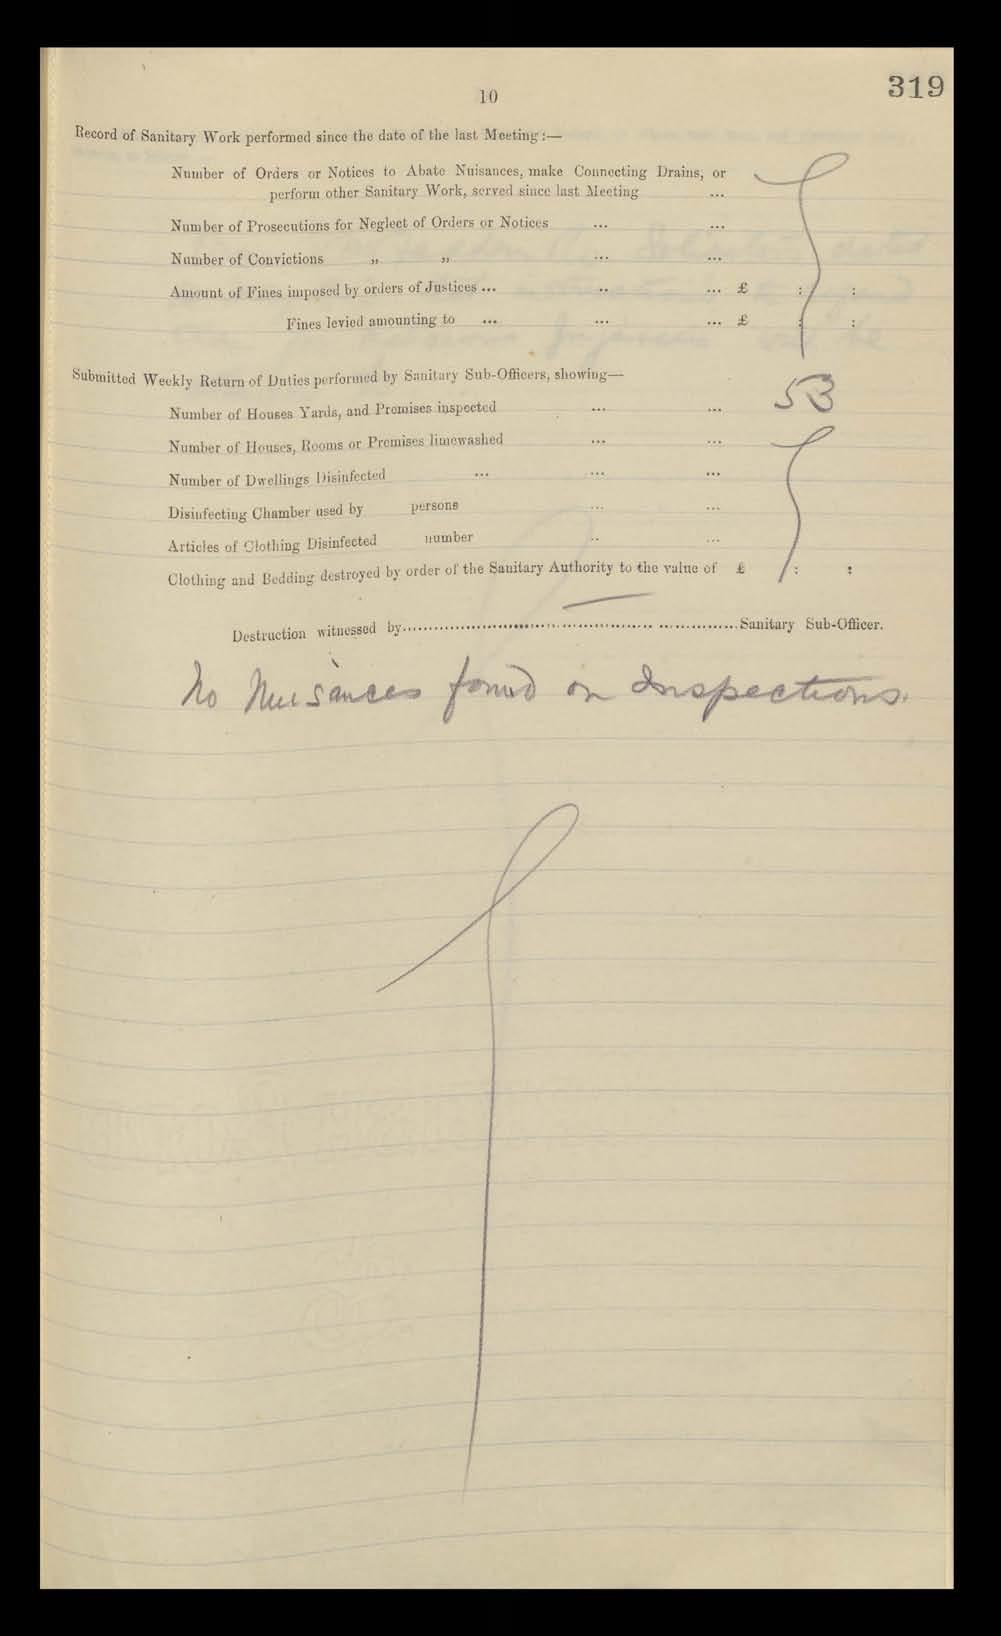 10
319
Record of Sanitary Work performed since the date of the last Meeting:—
Number of Orders or Notices to Abate Nuisances, make Connecting Drains, or
perform other Sanitary Work, served since last Meeting ...
Number of Prosecutions for Neglect of Orders or Notices ... ...
Number of Convictions „ „ ... ...
Amount of Fines imposed by orders of Justices ... .. ... £ : :
Fines levied amounting to ... ... ... £ : :
Submitted Weekly Return of Duties performed by Sanitary Sub-Officers, showing—
Number of Houses Yards, and Premises inspected ... ... 53
Number of Houses, Rooms or Premises limewashed ... ...
Number of Dwellings Disinfected ... ... ...
Disinfecting Chamber used by persons ... ...
Articles of Clothing Disinfected number .. ...
Clothing and Bedding destroyed by order of the Sanitary Authority to the value of £ : :
Destruction witnessed by.......................................................Sanitary Sub-Officer.
No Nuisances found on Inspections.